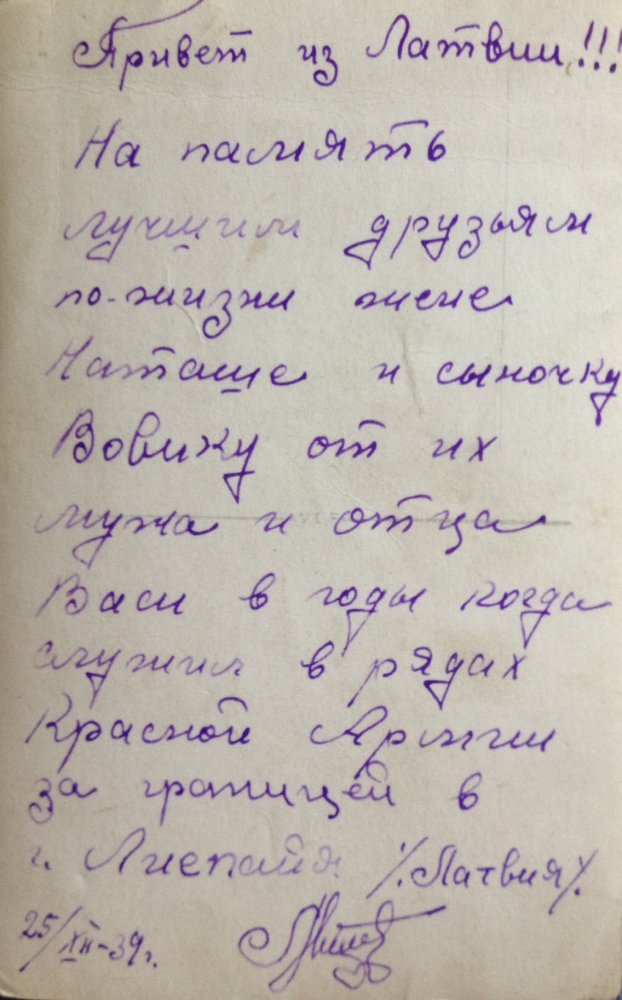 Привет из Латвии!!!
На память
лучшим друзьям
по-жизни жене
Наташе и сыночку
Вовику от их
мужа и отца
Васи в годы когда
служил в рядах
Красной Армии
за границей в
г. Лиепайя /.Латвия/.
25/XII-39г.